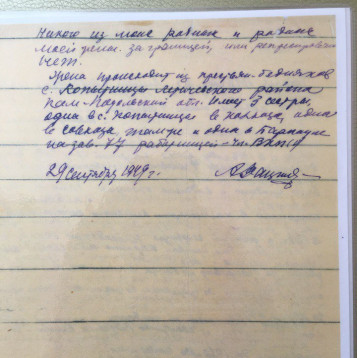 Никого из моих родных и родных
моей жены за границей, или репрессирован
нет.
Жена происходит из крестьян-бедняков
с. Копытинцы Летичевского района
Кам-Подольской обл. Имеет 3 сестры,
одна в с. Копытинце в колхозе, одна
в совхозе там же и одна в Барнауле
на зав. 77 работницей - чл. ВКП(б)
29 сентября 1949 г.